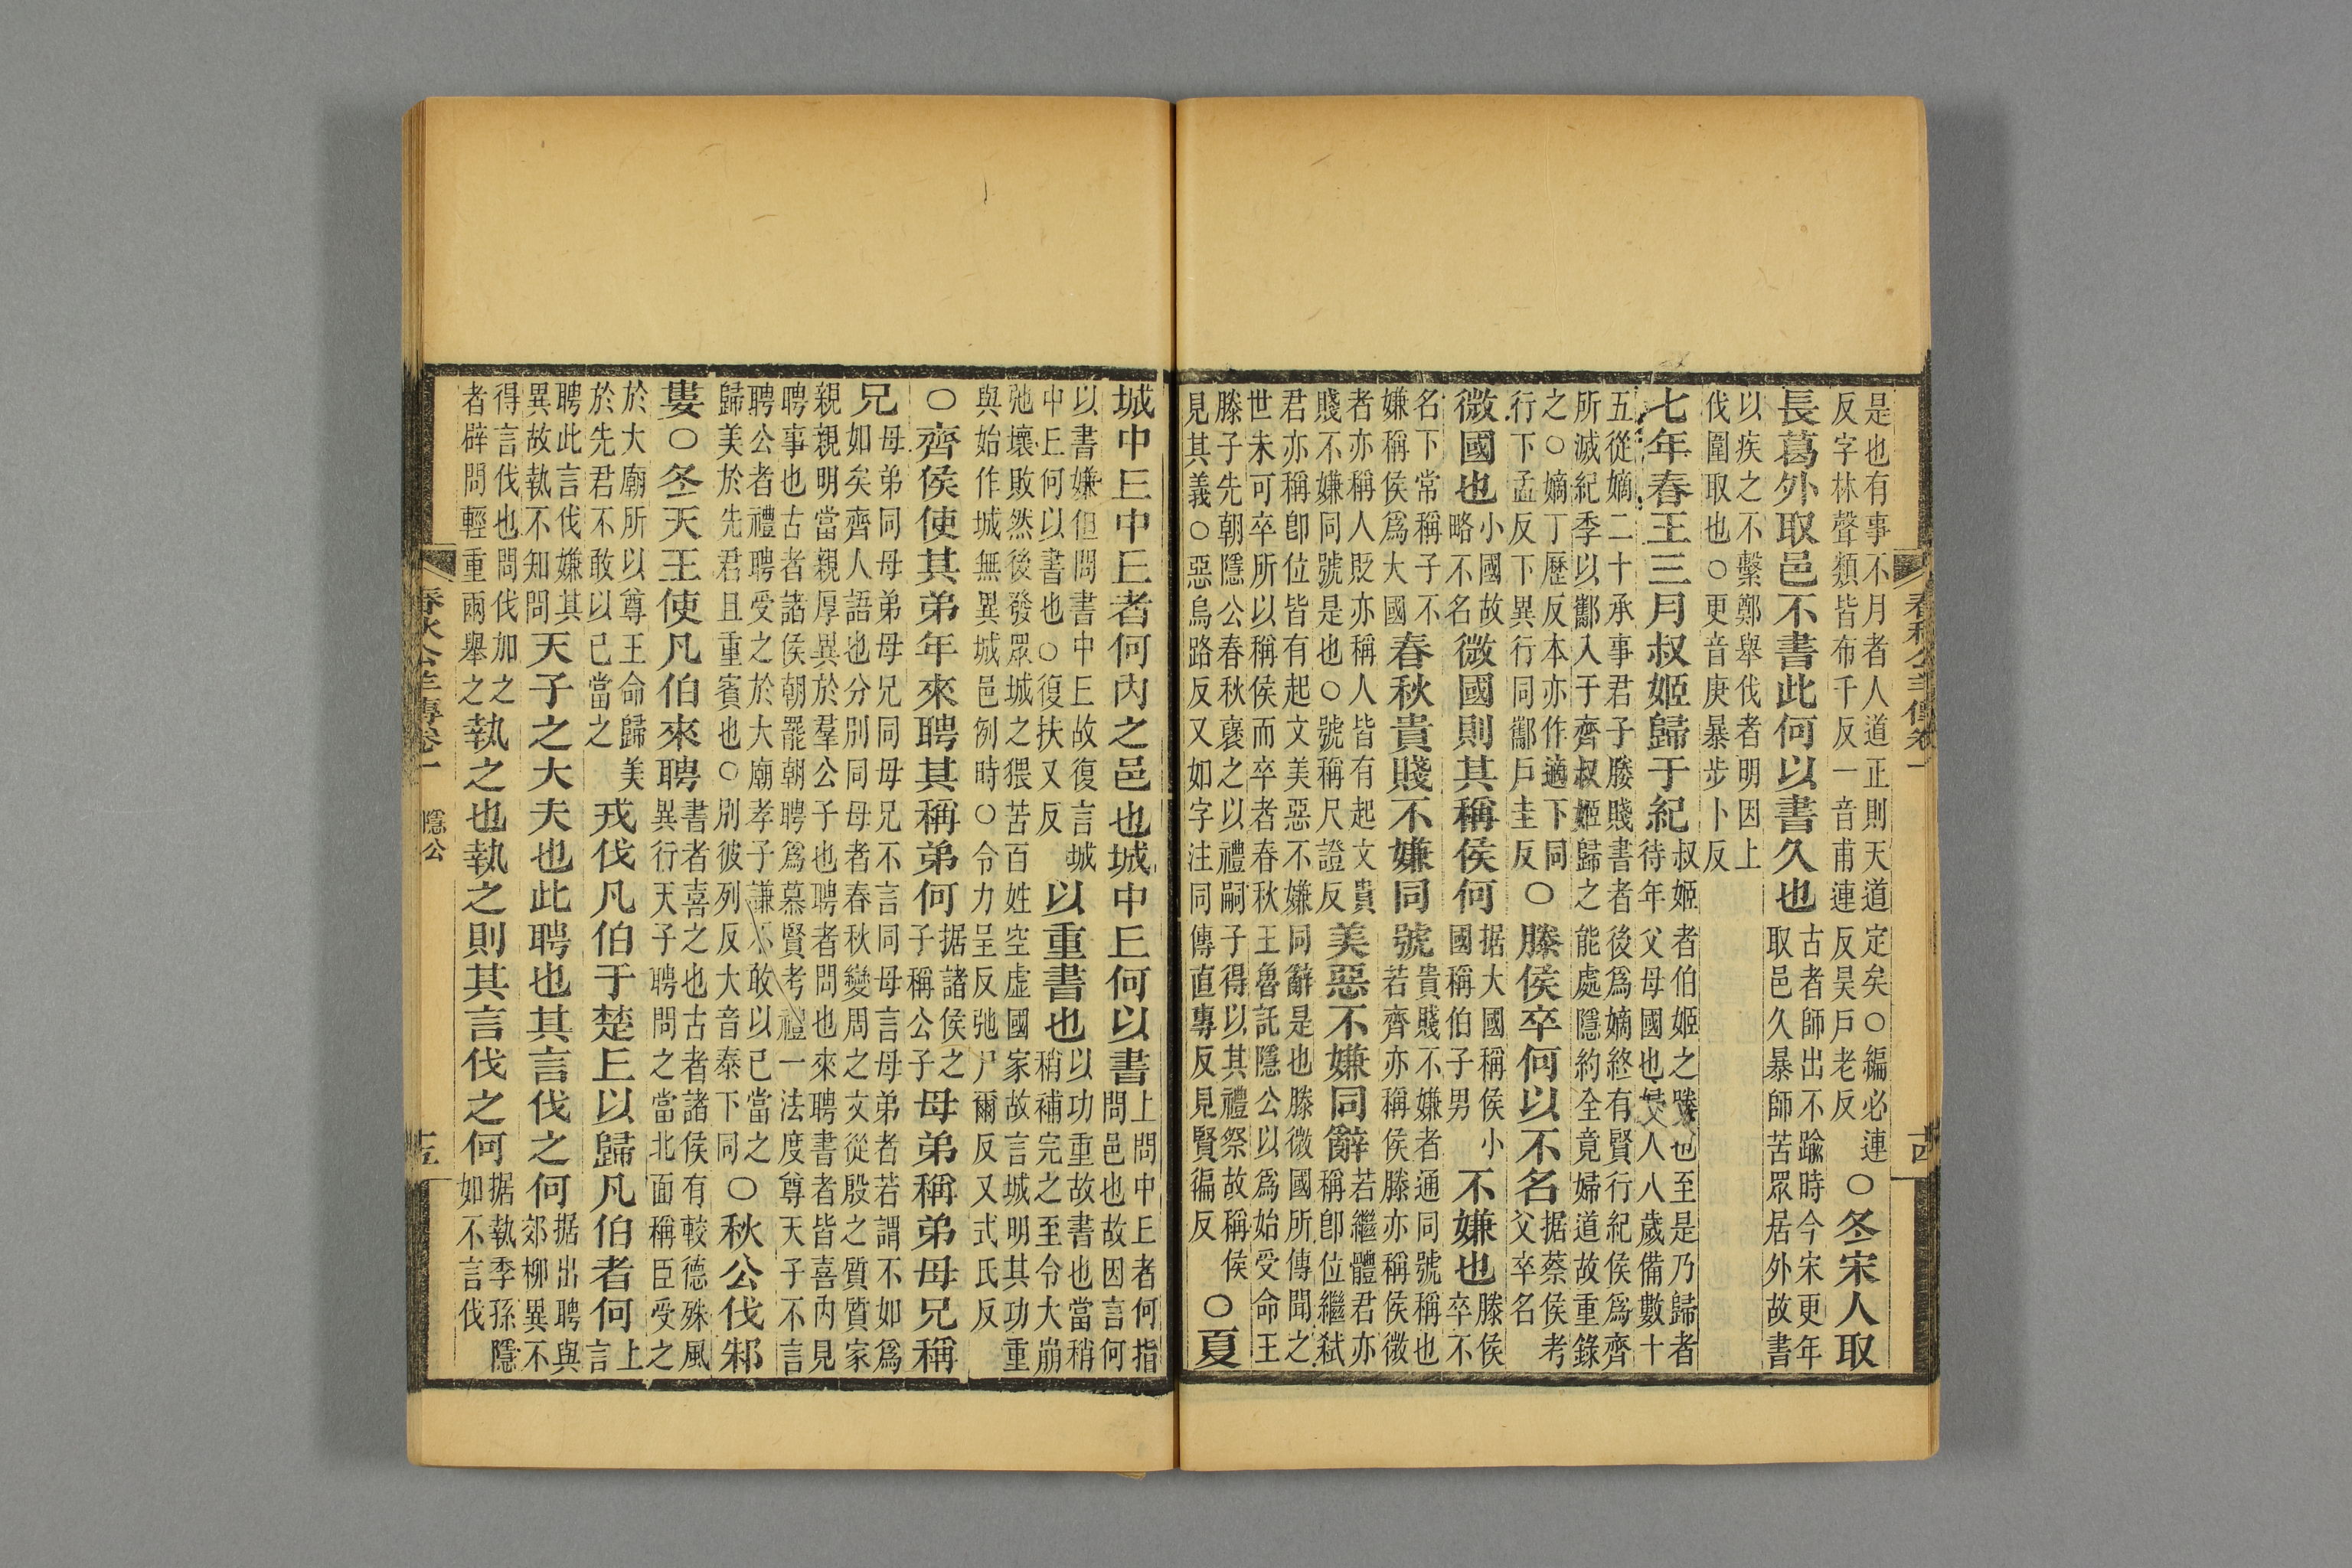 春秋公羊傳卷一
十四
是也有事不月者人道正則天道定矣○編必連反字林聲類皆布千反一音甫連反昊戶老反○冬宋人取
長葛外取邑不書此何以書久也古者師出不踰時今宋更年取邑久暴師苦眾居外故書
以疾之不繫鄭舉伐者明因上伐圍取也○更音庚暴步卜反
七年春王三月叔姬歸于紀叔姬者伯姬之媵也至是乃歸者待年父母國也人八歲備數十
五從嫡二十承事君子媵賤書者後爲嫡終有賢行紀侯爲齊所滅紀季以酅入于齊叔姬歸之能處隱約全竟婦道故重錄
之○嫡丁歷反本亦作適下同行下孟反下異行同酅戶圭反○滕侯卒何以不名据蔡侯考父卒名
微國也小國故略不名微國則其稱侯何据大國稱侯小國稱伯子男不嫌也滕侯卒不
名下常稱子不嫌稱侯爲大國春秋貴賤不嫌同號貴賤不嫌者通同號稱也若齊亦稱侯滕亦稱侯微
者亦稱人貶亦稱人皆有起文貴賤不嫌同號是也○號稱尺證反美惡不嫌同辭若繼體君亦稱卽位繼弒
君亦稱卽位皆有起文美惡不嫌同辭是也滕微國所傳聞之世未可卒所以稱侯而卒者春秋王魯託隱公以爲始受命王
滕子先朝隱公春秋襃之以禮嗣子得以其禮祭故稱侯見其義○惡烏路反又如字注同傳直專反見賢徧反○夏
城中丘中丘者何內之邑也城中丘何以書上問中丘者何指問邑也故因言何
以書嫌但問書中丘故復言城中丘何以書也○復扶又反以重書也以功重故書也當稍稍補完之至令大崩
弛壞敗然後發眾城之猥苦百姓空虛國家故言城明其功重與始作城無異城邑例時○令力呈反弛尸爾反又式氏反
○齊侯使其弟年來聘其稱弟何据諸侯之子稱公子母弟稱弟母兄稱
兄母弟同母弟母兄同母兄不言同母言母弟者若謂不如爲如矣齊人語也分別同母者春秋變周之文從殷之質質家
親親明當親厚異於羣公子也聘者問也來聘書者皆喜內見聘事也古者諸侯朝罷朝聘爲慕賢考禮一法度尊天子不言
聘公者禮聘受之於大廟孝子謙不敢以已當之歸美於先君且重賓也○別彼列反大音泰下同○秋公伐邾
婁○冬天王使凡伯來聘書者喜之也古者諸侯有較德殊風異行天子聘問之當北面稱臣受之
於大廟所以尊王命歸美於先君不敢以已當之戎伐凡伯于楚丘以歸凡伯者何上言
聘此言伐嫌其異故執不知問天子之大夫也此聘也其言伐之何据出聘與郊柳異不
得言伐也問伐加之者辟問輕重兩舉之執之也執之則其言伐之何据執季孫隱如不言伐
春秋公羊傳卷一
隱公
十五